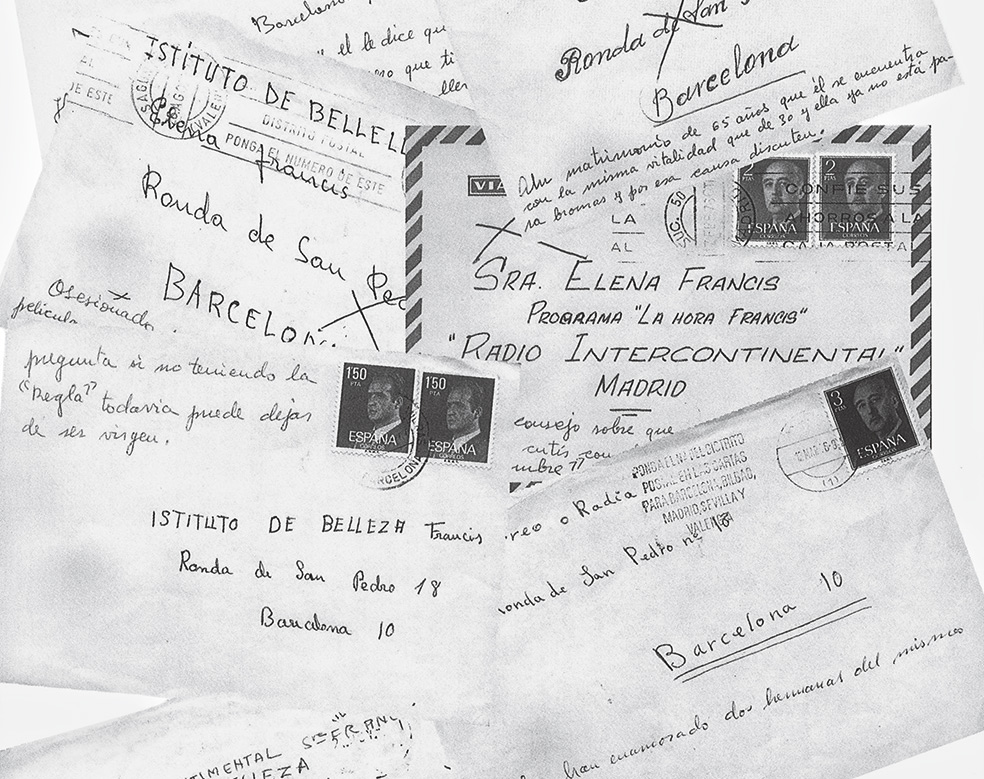 Barcelona
" el le dice qu
que ti
ller
ISTITUTO DE BELLEZ
DISTRITO POSTAL
PONGA EL NUMERO DE ESTE
AL
JE ESTE
Elena Francis
Ronda de San Ped
BARCELON
Obsesionado
pelicula
Ronda de San
Barcelona
Ahi matrimonio de 65 años que él se encuentra
con la misma vitalidad que de 30 y ella ya no está pa-
ra bromas y por esa causa discuten.
VIA
LA
AL
SUC. 50
2 PTAS
ESPAÑA
CORREOS
2 PTAS
ESPAÑA
CONFIE SUS
AHORROS A LA
CAJA POSTAL
SRA. ELENA FRANCIS
PROGRAMA "LA HORA FRANCIS"
"RADIO INTERCONTINENTAL"
MADRID
consejo sobre que
cutis con
mbre"
pregunta si no teniendo la
"regla" todavia puede dejar
de ser virgen.
150 PTA
ESPAÑA
CORREOS
150 PTA
ESPAÑA
CORREOS
BARCELONA
ISTITUTO DE BELLEZA Francis
Ronda de San Pedro 18
Barcelona 10
3 PTAS
ESPAÑA
PONGA EL Nº DEL DISTRITO
POSTAL EN LAS CARTAS
PARA BARCELONA, BILBAO,
MADRID, SEVILLA Y
VALENCIA
reo o Radia
onda de San Pedro nº 18
Barcelona 10
han enamorado dos hermanas del mismo
TIMENTAL
LLEZA
Sta FRAN